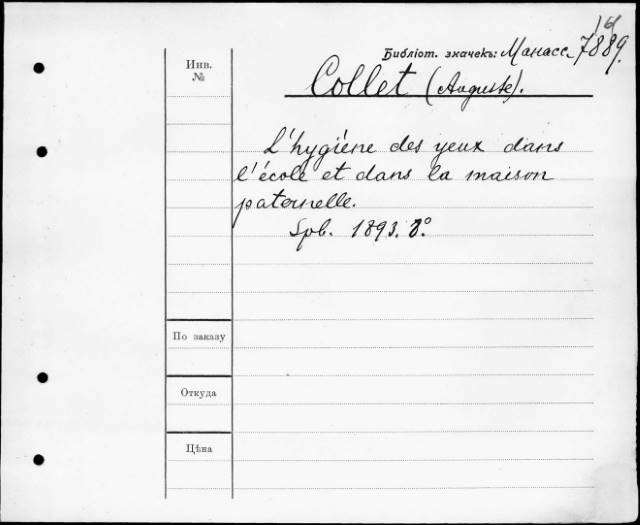 14
Библіот. значекъ: Манасс. 7889.
Инв.
№
Collet (Auguste).
L'hygiène des yeux dans
l'école et dans la maison
paternelle.
Spb. 1893. 8°.
По заказу
Откуда
Цѣна